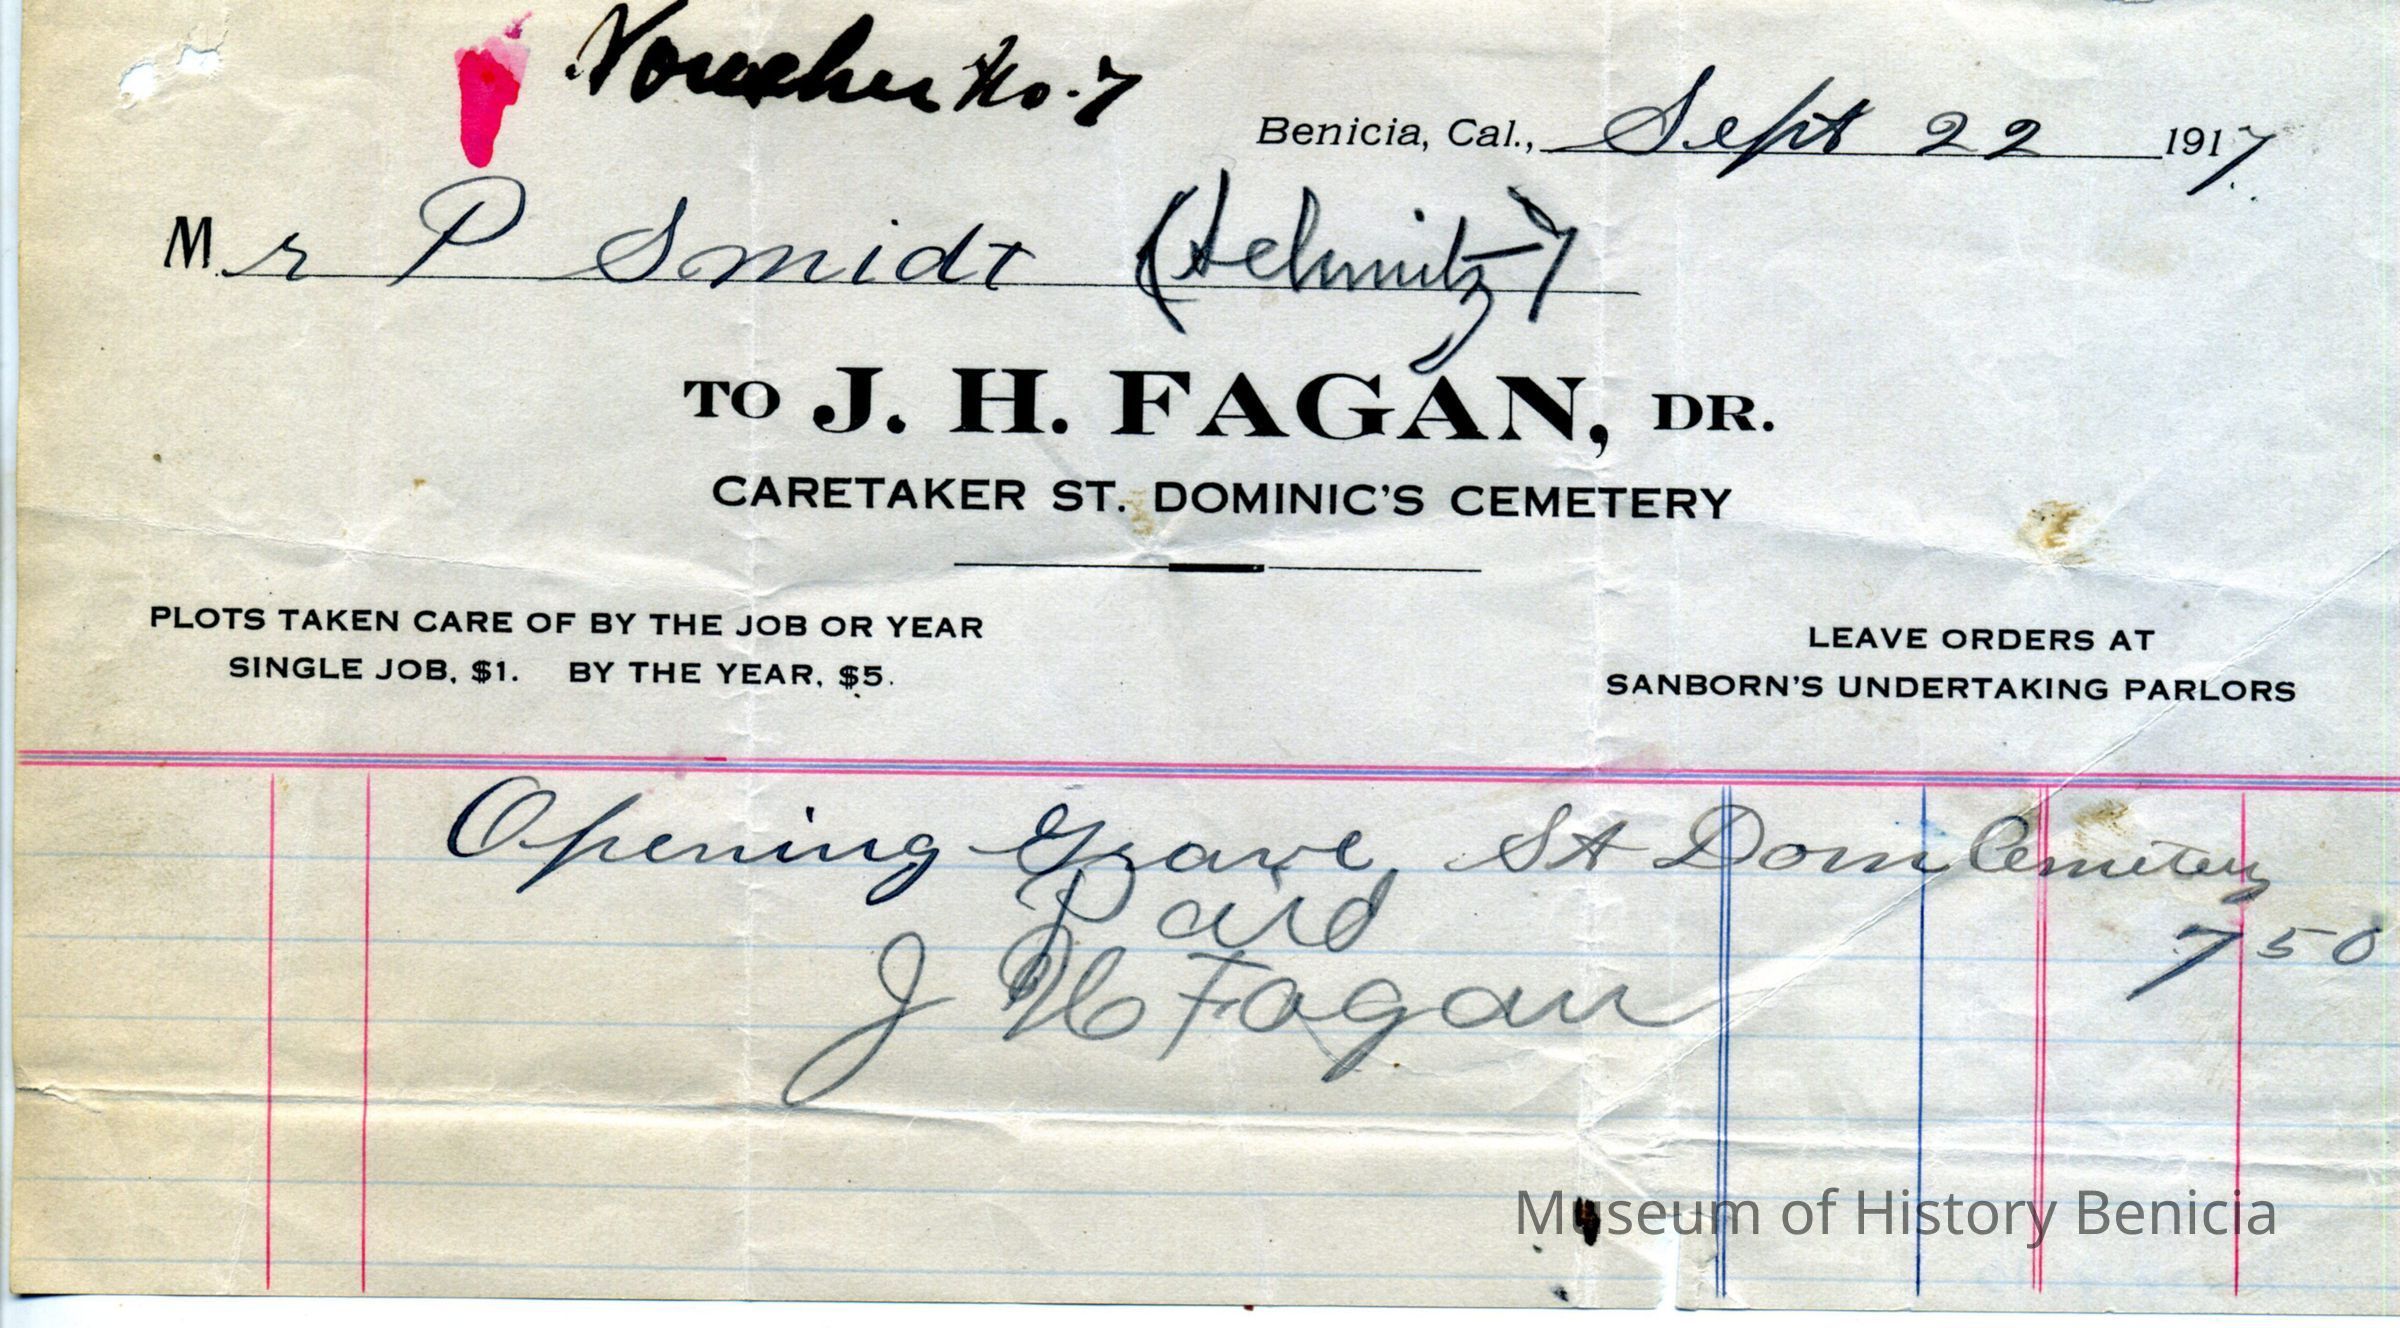 Voucher No. 7
Benicia, Cal., Sept 22 1917
Mr P Smidt (Schmitz)
TO J. H. FAGAN, DR.
CARETAKER ST. DOMINIC'S CEMETERY
PLOTS TAKEN CARE OF BY THE JOB OR YEAR
SINGLE JOB, $1. BY THE YEAR, $5.
LEAVE ORDERS AT
SANBORN'S UNDERTAKING PARLORS
Opening Grave, St Dom Cemetery
Paid
7 50
J H Fagan
Museum of History Benicia